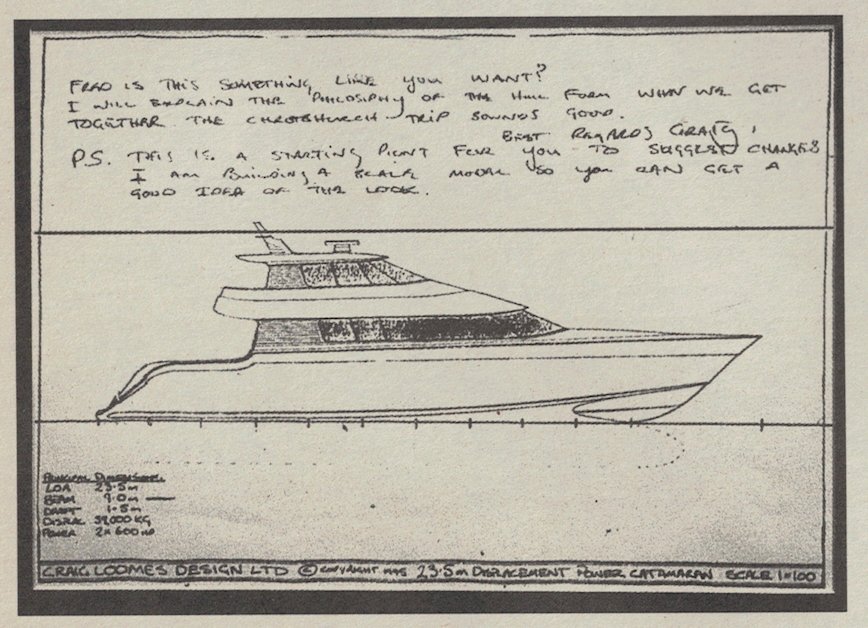 FRED IS THIS SOMETHING LIKE YOU WANT?
I WILL EXPLAIN THE PHILOSIPHY OF THE HULL FORM WHEN WE GET
TOGETHER. THE CHRISTCHURCH TRIP SOUNDS GOOD.
BEST REGARDS CRAIG,
P.S. THIS IS A STARTING POINT FOR YOU TO SUGGEST CHANGES
I AM BUILDING A SCALE MODEL SO YOU CAN GET A
GOOD IDEA OF THE LOOK.
PRINCIPAL DIMENSIONS.
LOA 23.5m
BEAM 9.0m
DRAFT 1.5m
DISPLAC 39,000 KG
POWER 2x600 HP
CRAIG LOOMES DESIGN LTD © COPYRIGHT 1995 23.5m DISPLACEMENT POWER CATAMARAN SCALE 1=100